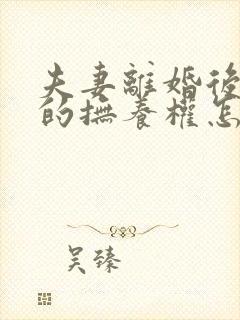 夫妻離婚後
的撫養權怎
吴臻